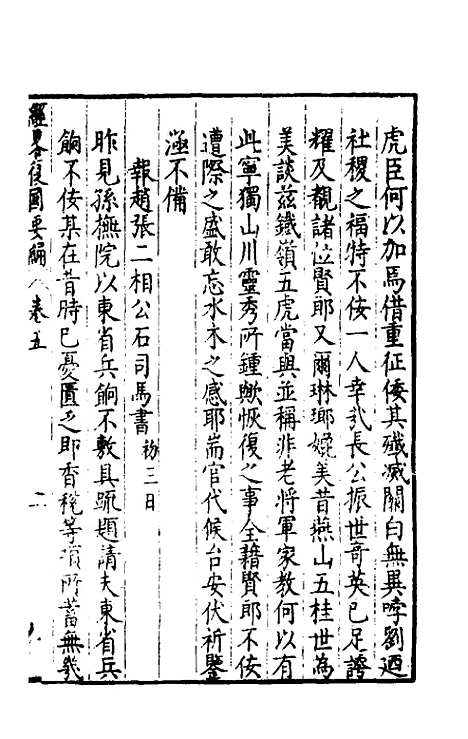 虎臣何以加焉借重征倭其殲滅關白無異哱劉廼
社稷之福特不佞一人幸哉長公振世奇英已足誇
耀及覯諸位賢郎又爾琳瑯媲美昔燕山五桂世為
美談茲鐵嶺五虎當與並稱非老將軍家教何以有
此寧獨山川靈秀所鍾歟恢復之事全藉賢郎不佞
遭際之盛敢忘水木之感耶耑官代候台安伏祈鑒
涵不備
報趙張二相公石司馬書初三日
昨見孫撫院以東省兵餉不敷具疏題請夫東省兵
餉不佞某在昔時已憂匱乏即香稅等項所蓄無幾
經畧復國要編 卷五 二